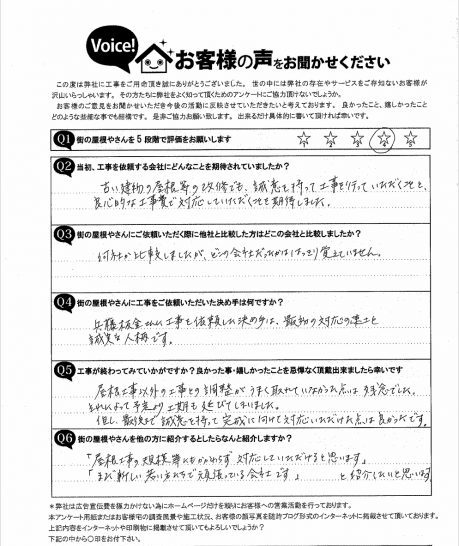 Voice!
お客様の声をお聞かせください
この度は弊社に工事をご用命頂き誠にありがとうございました。世の中には弊社の存在やサービスをご存知ないお客様が
沢山いらっしゃいます。その方たちに弊社をよく知って頂くためのアンケートにご協力頂けないでしょうか。
お客様のご意見をお聞かせいただき今後の活動に反映させていただきたいと考えております。良かったこと、嬉しかったこと
どのような些細な事でも結構です。是非ご協力お願い致します。出来るだけ具体的に書いて頂ければ幸いです。
Q1 街の屋根やさんを5段階で評価をお願いします
1 2 3 4 5
Q2 当初、工事を依頼する会社にどんなことを期待されていましたか?
古い建物の屋根等の改修でも、誠意を持って工事を行っていただく事と、
良心的な工事費で対応していただく事を期待しました。
Q3 街の屋根やさんにご依頼いただく際に他社と比較した方はどこの会社と比較しましたか?
何社か比較しましたが、どこの会社だったかははっきり覚えていません。
Q4 街の屋根やさんに工事をご依頼いただいた決め手は何ですか?
兵藤板金さんに工事を依頼した決め手は、最初の対応の速さと
誠実な人柄です。
Q5 工事が終わってみていかがですか?良かった事・嬉しかったことを忌憚なく頂戴出来ましたら幸いです
屋根工事以外の工事との調整がうまく取れていなかった点は残念でした。
それによって予定より工期も延びてしまいました。
但し、最後まで誠意を持って完成に向けて対応いただけた点は良かったです。
Q6 街の屋根やさんを他の方に紹介するとしたらなんと紹介しますか?
「屋根工事の規模等にもかかわらず対応していただけると思います」
「まだ新しい若い方たちで頑張っている会社です」 と紹介したいと思います
*弊社は広告宣伝費を膨力かけない為にホームページだけを頼りにお客様への営業活動を行っております。
本アンケート用紙またはお客様宅の調査風景や施工状況、お客様の顔写真を随時ブログ形式のインターネットに掲載させて頂いております。
上記内容をインターネットや印刷物に掲載させて頂いてもよろしいでしょうか?
下記の中から○印をお付け下さい。